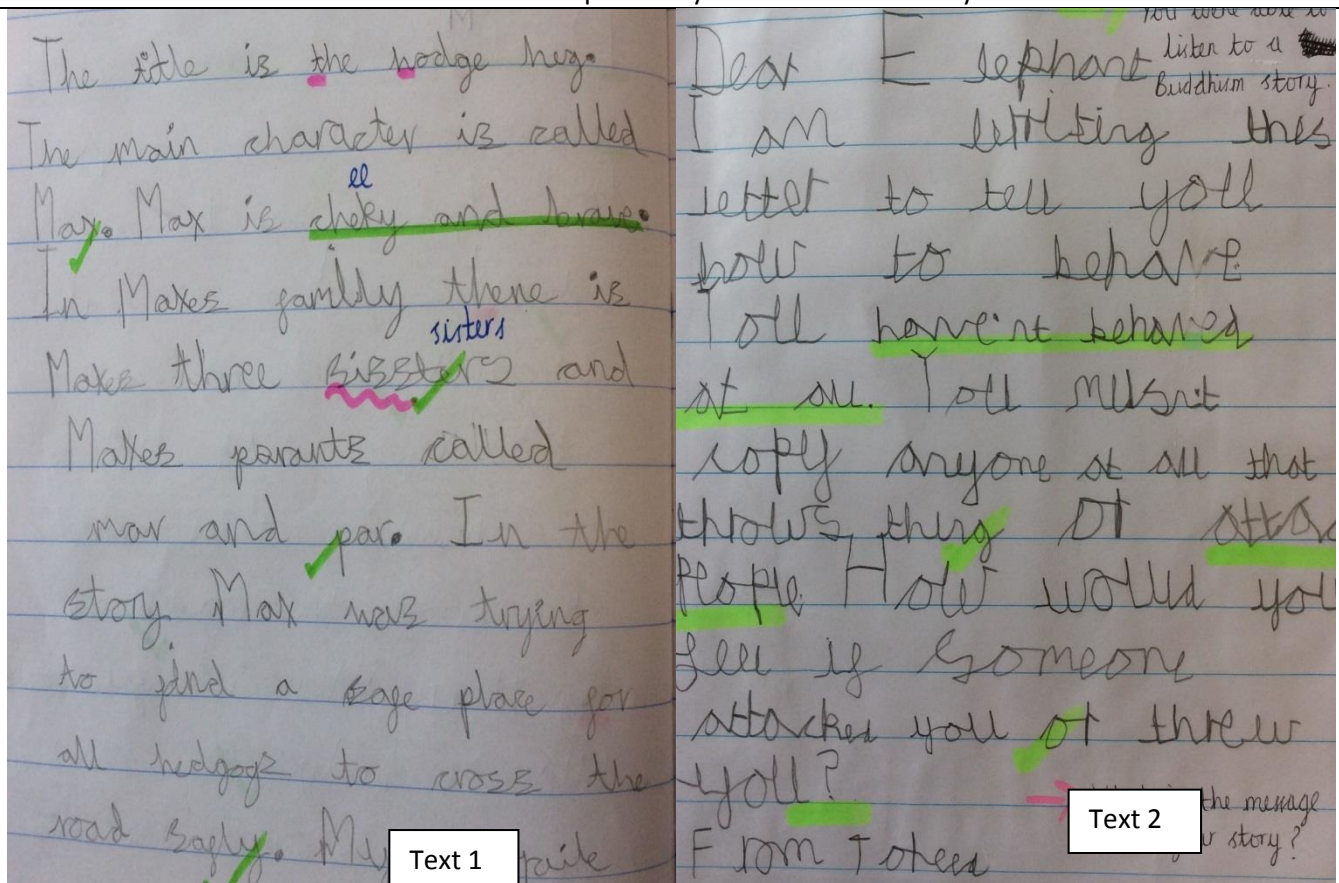 The title is the hodge heg.
The main character is called
ee
Max. Max is cheky and brave.
In Maxes familly there is
sisters
Maxes three sissters and
Maxes parants called
mar and par. In the
story Max was trying
to find a safe place for
all hedgogs to cross the
road safly. My
Text 1
You were able to
listen to a
Buddhism story.
Dear Elephant
I am writting this
letter to tell you
how to behave
You havent behaved
at all. You musnt
copy anyone at all that
throws thing or attac
people How would you
feel if someone
attacked you or threw
you?
the message
story?
From
Text 2